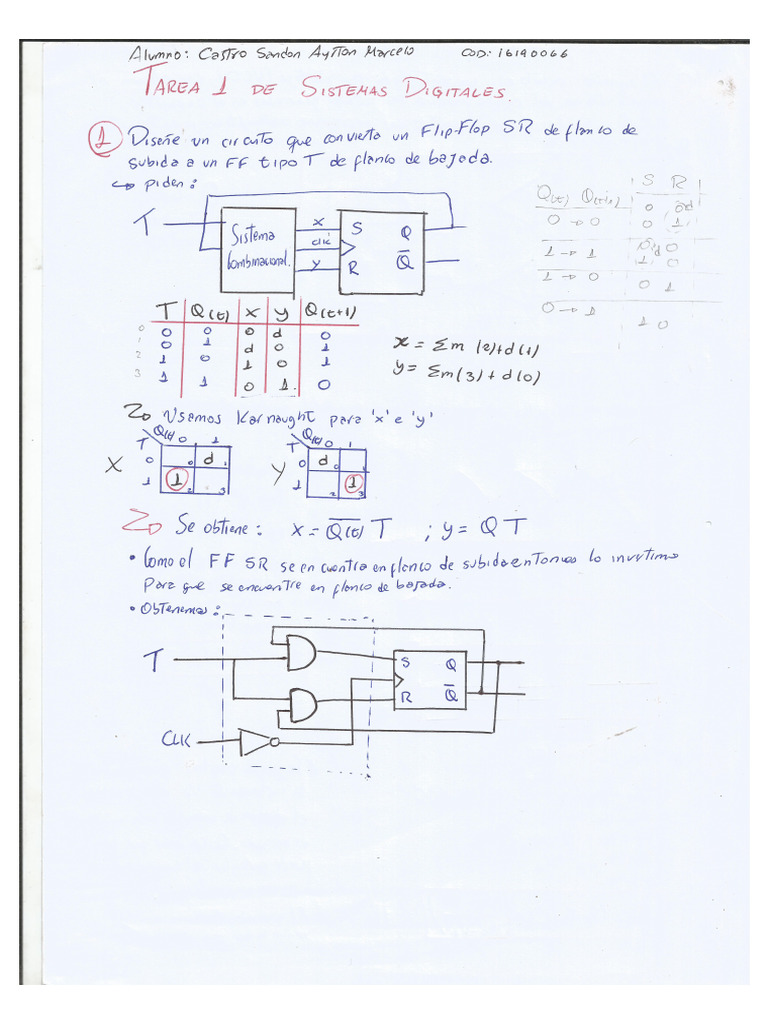 Alumno: Castro Sandon Ayrton Marcelo COD: 16190066
TAREA 1 DE SISTEMAS DIGITALES.
1 Diseñe un circuito que convierta un Flip-Flop SR de flanco de
subida a un FF tipo T de flanco de bajada.
↳ piden:
T
Sistema
Combinacional.
x
clk
y
S Q
R Q̅
Q(t) Q(t+1) S R
0 → 0 0 0
0 1
1 → 1 0
1 0
1 → 0 0 1
0 → 1 1 0
T Q(t) x y Q(t+1)
0 0 0 0 d 0
1 0 1 d 0 1
2 1 0 1 0 1
3 1 1 0 1. 0
x = Σm (2)+d(1)
y = Σm(3)+d(0)
Usamos Karnaught para 'x' e 'y'
X
T Q(t) 0 1
0 0 d 1
1 1 2 3
Y
T Q(t) 0 1
0 d 0 1
1 2 1 3
Se obtiene: x = Q̅(̅t̅)̅ T ; y = Q T
• Como el FF SR se encuentra en flanco de subida entonces lo invertimos
Para que se encuentre en flanco de bajada.
• Obtenemos:
T
S Q
R Q̅
CLK